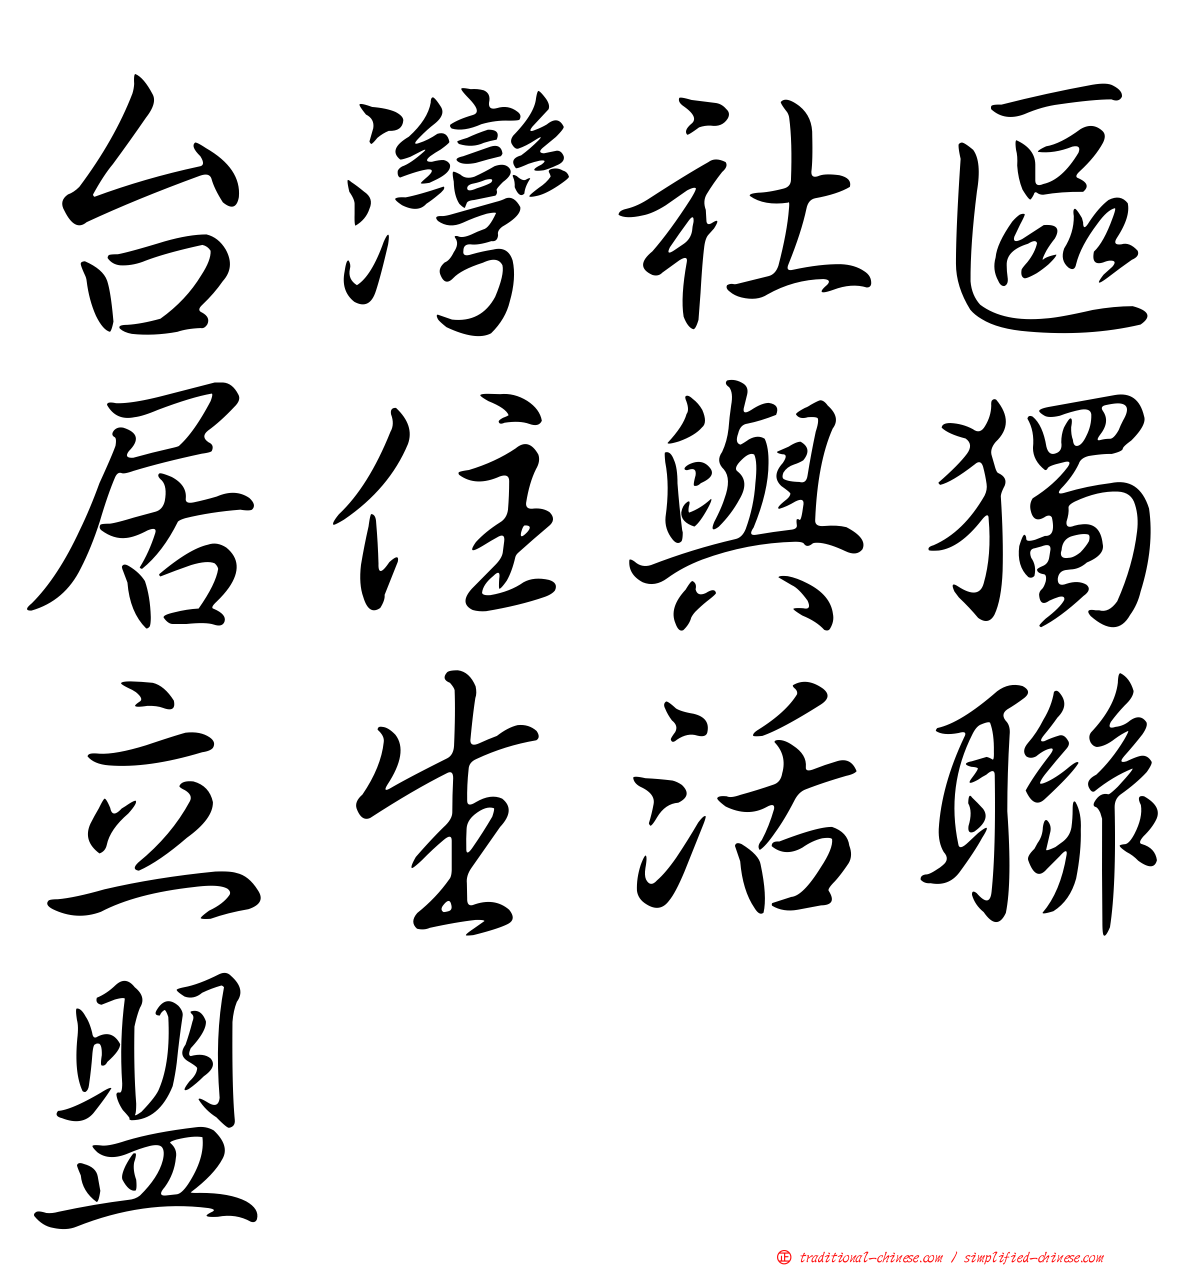 台灣社區
居住與獨
立生活聯
盟
正 traditional-chinese.com / simplified-chinese.com